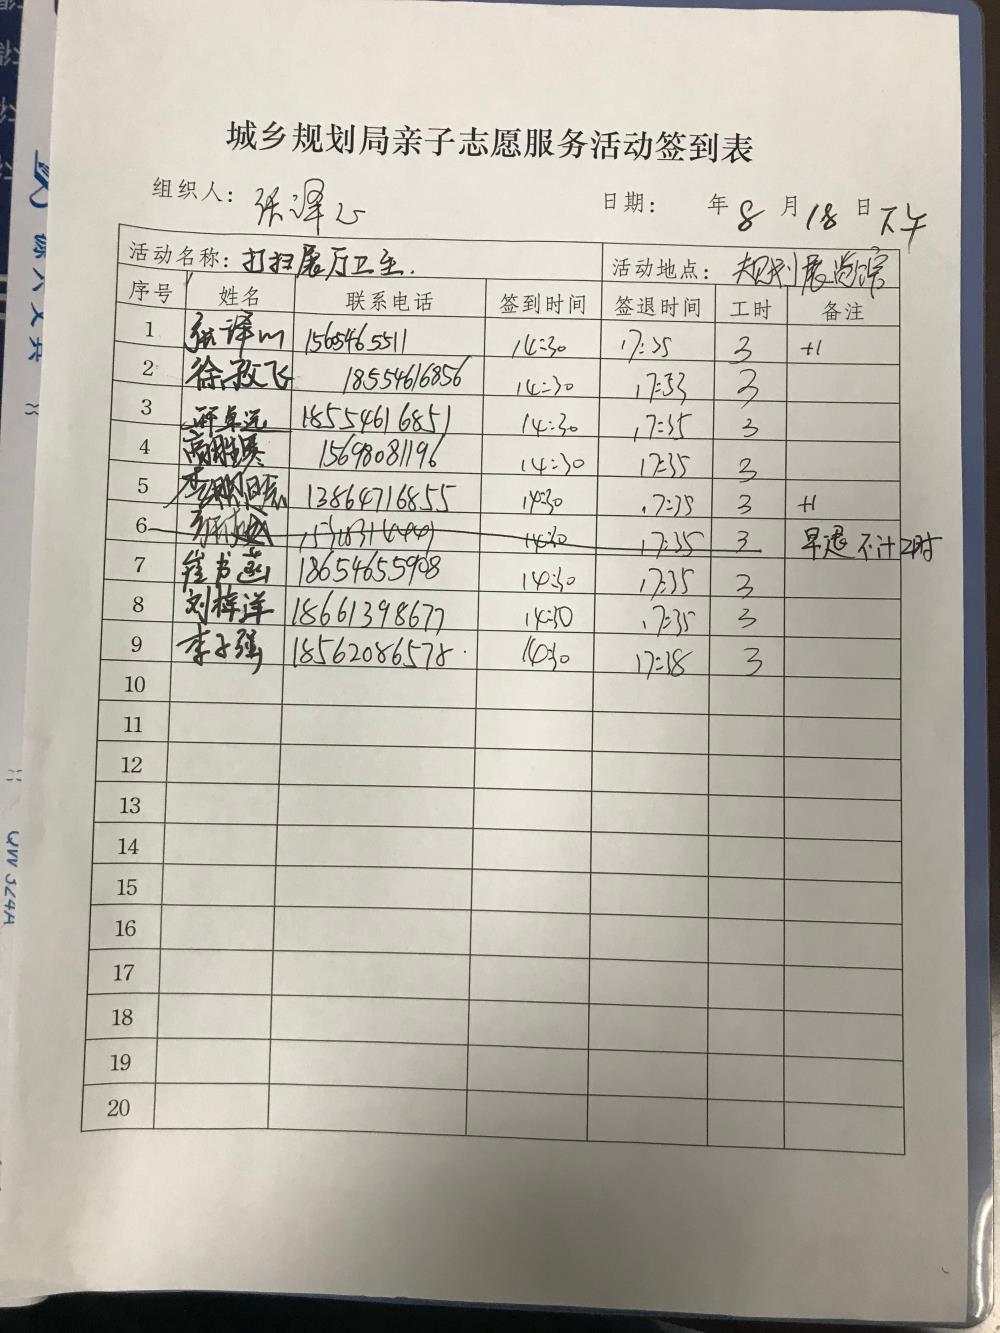 城乡规划局亲子志愿服务活动签到表
组织人：张泽心
日期： 年8月18日下午
活动名称：打扫展厅卫生. 活动地点：规划展览馆
序号 姓名 联系电话 签到时间 签退时间 工时 备注
1 1565465511 14:30 17:35 3 +1
2 徐孜飞 18554616856 14:30 17:33 3
3 卓远 18554616851 14:30 17:35 3
4 高 15698081196 14:30 17:35 3
5 李 13864716855 14:30 17:35 3 +1
6 14:30 17:35 3 早退 不计工时
7 崔书菡 18654655908 14:30 17:35 3
8 刘梓洋 18661398677 14:30 17:35 3
9 李子强 18562086578 14:30 17:38 3
10
11
12
13
14
15
16
17
18
19
20
QVV3L4A